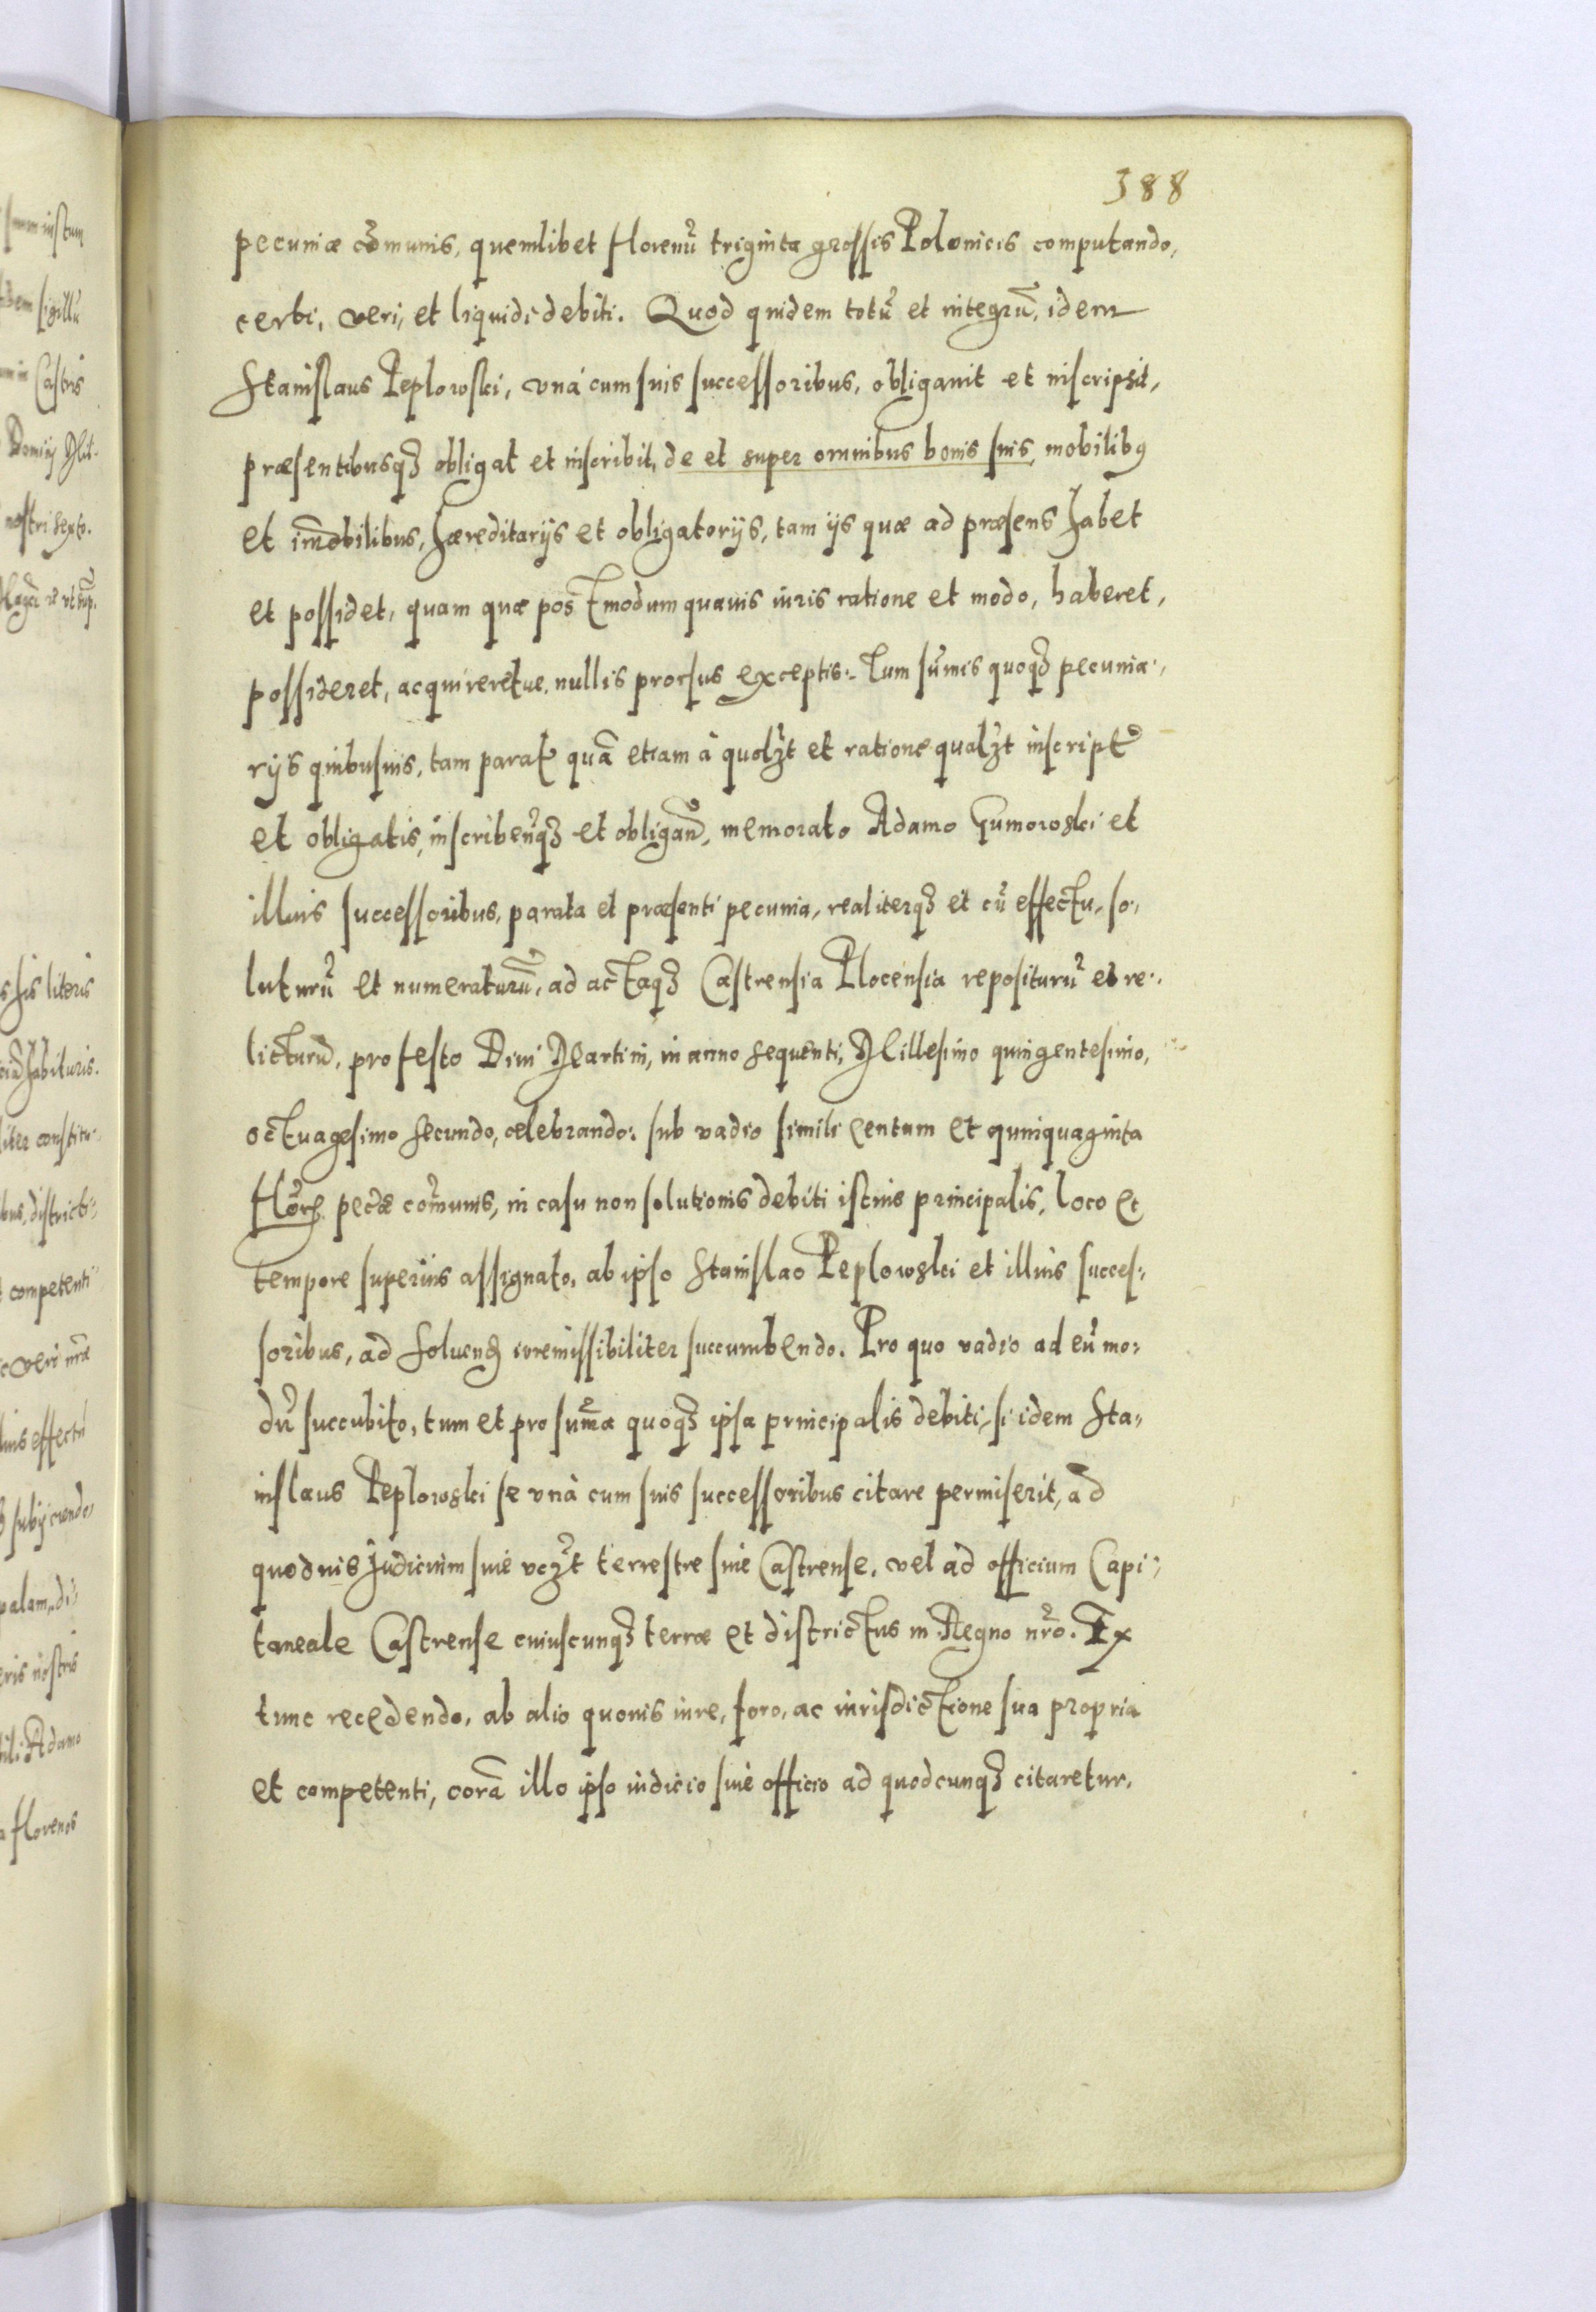 388
pecuniæ cōmunis, quemlibet florenū triginta grossis Polonicis computando,
certi, veri, et liquidi debiti. Quod quidem totū et integrū, idem
Stanislaus Peplowski, vná cum suis successoribus, obligauit et inscripsit,
præsentibusqȝ obligat et inscribit, de et super omnibus bonis suis, mobilibꝰ
et im̄obilibus, hæreditarijs et obligatorijs, tam ijs quæ ad præsens habet
et possidet, quam quæ postmodum quauis iuris ratione et modo, haberet,
possideret, acquireretue, nullis prorsus exceptis: Tum sūmis quoqȝ pecunia-
rijs quibusuis, tam parat̃ quā etiam à quolȝt et ratione qualȝt inscript̃
et obligatis, inscribeñqȝ et obligañ, memorato Adamo Gumowski et
illius successoribus, parata et præsenti pecunia, realiterqȝ et cū effectu, so-
luturū et numeraturū, ad actaqȝ Castrensia Plocensia repositurū et re-
licturū, pro festo Diui Martini, in anno sequenti, Millesimo quingentesimo,
octuagesimo secundo, celebrando: sub vadio simili centum et quinquaginta
florꝫ pecūæ com̄unis, in casu non solutionis debiti istius principalis, loco et
tempore superius assignato, ab ipso Stanislao Peplowski et illius succes-
soribus, ad soluend irremissibiliter succumbendo. Pro quo vadio ad eū mo-
dū succubito, tum et pro sum̄a quoqȝ ipsa principalis debiti, si idem Sta-
nislaus Peplowski se vnà cum suis successoribus citare permiserit, ad
quoduis Judicium siue vcȝt terrestre siue Castrense, vel ad officium Capi-
taneale Castrense cuiuscunqȝ terræ et districtus in Regno nr̄o. Ex
tunc recedendo, ab alio quouis iure, foro, ac iurisdictione sua propria
et competenti, corā illo ipso iudicio siue officio ad quodcunqȝ citaretur,